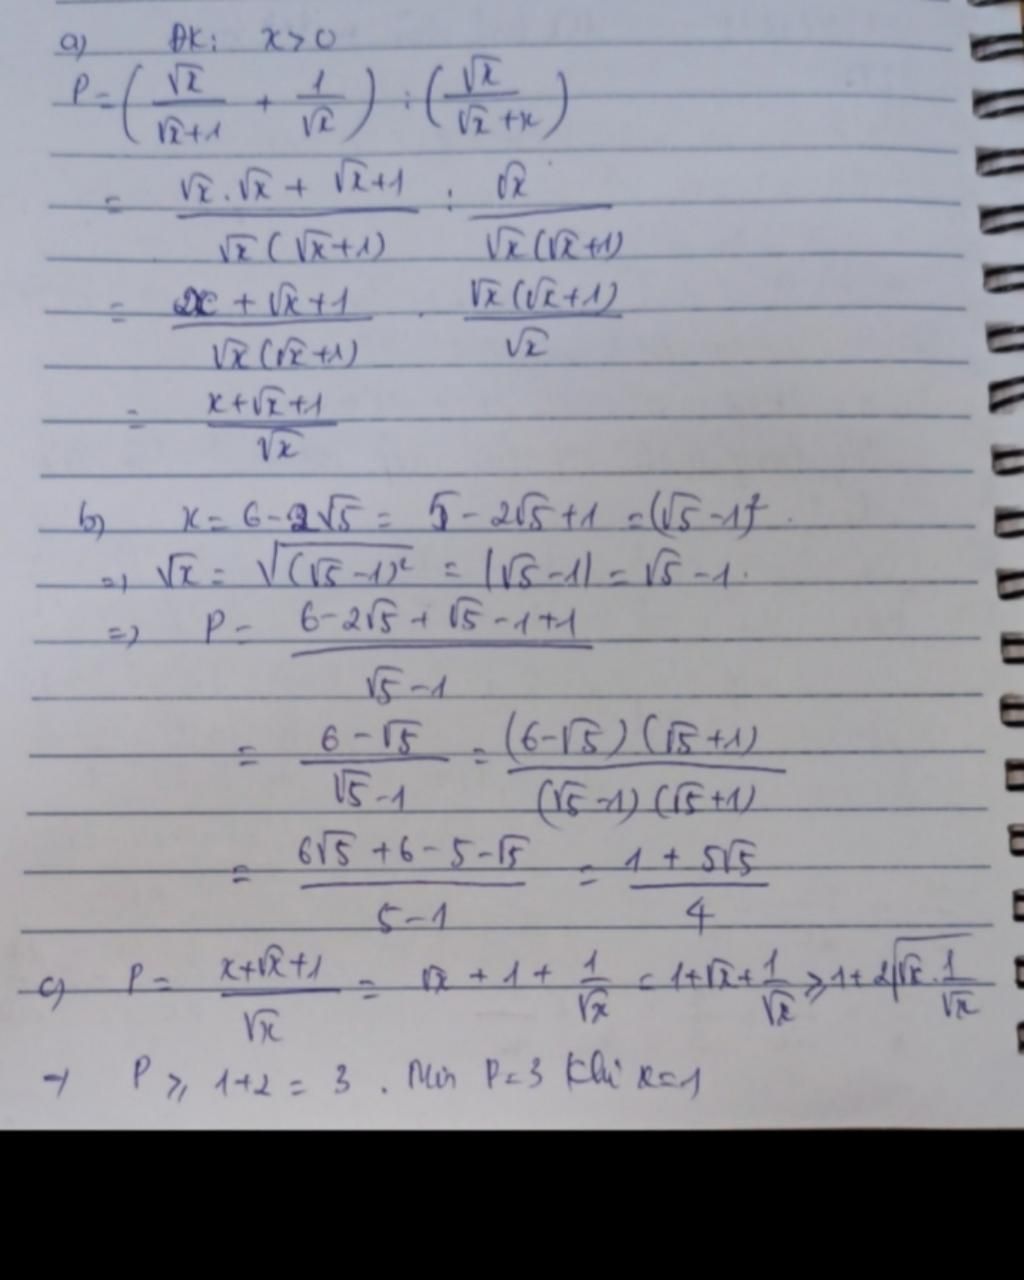 a) ĐK: x > 0
P = (√x/(√x+1) + 1/√x) : (√x/(√x+x))
= (√x.√x + √x+1)/(√x(√x+1)) : √x/(√x(√x+1))
= (x + √x+1)/(√x(√x+1)) . √x(√x+1)/√x
= (x+√x+1)/√x
b) x = 6-2√5 = 5 - 2√5+1 = (√5-1)².
=> √x = √((√5-1)²) = |√5-1| = √5-1.
=> P = (6-2√5 + √5-1+1)/(√5-1)
= (6-√5)/(√5-1) = (6-√5)(√5+1)/((√5-1)(√5+1))
= (6√5+6-5-√5)/(5-1) = (1+5√5)/4
c) P = (x+√x+1)/√x = √x + 1 + 1/√x = 1+√x+1/√x ⩾ 1+2√(√x.1/√x)
→ P ⩾ 1+2 = 3. Min P=3 khi x=1